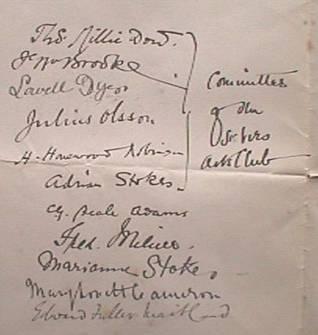 Thos. Millie Dow.
Wm Brooke
Lowell Dyer
Julius Olsson
H. Harewood Robinson
Adrian Stokes
Committee
of the
St Ives
Arts Club
Cg. Peale Adams
Fred. Milner.
Marianne Stokes,
Mary Cameron
Edward Fuller Maitland